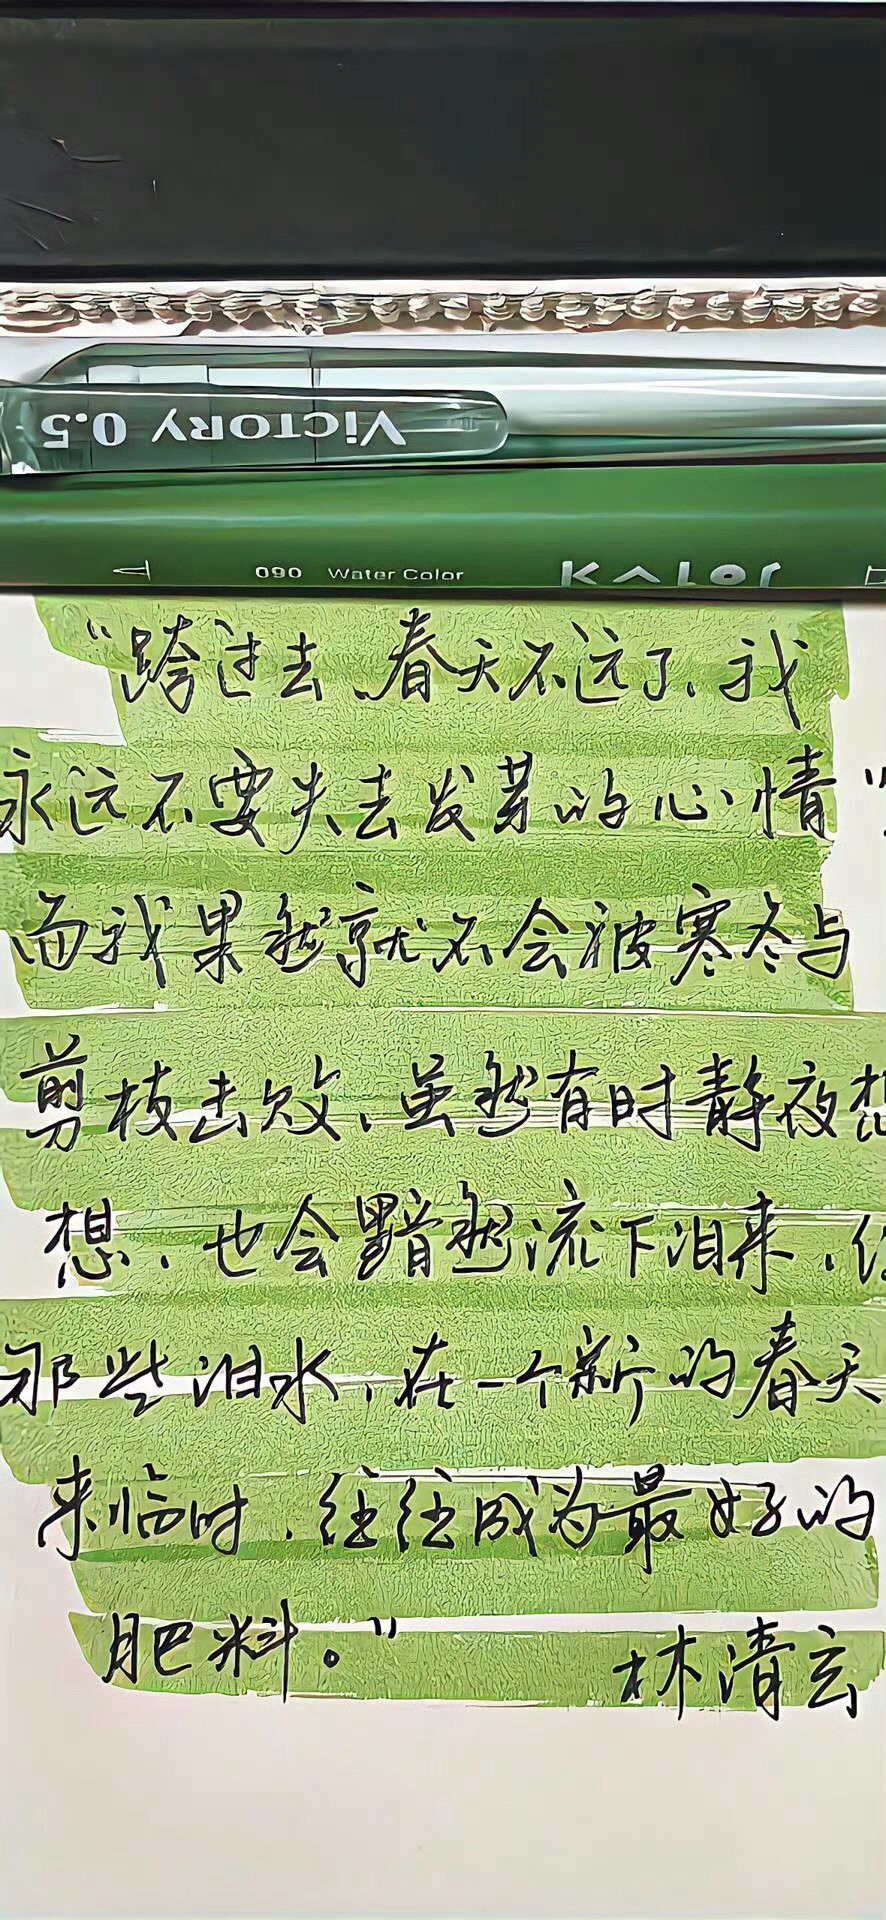 VICTORY 0.5
090 Water Color KALOR
“跨过去、春天不远了、我
永远不要失去发芽的心情”
而我果然就不会被寒冬与
剪枝击败、虽然有时静夜想
想、也会黯然流下泪来、但
那些泪水、在一个新的春天
来临时、往往成为最好的
肥料。”
林清玄